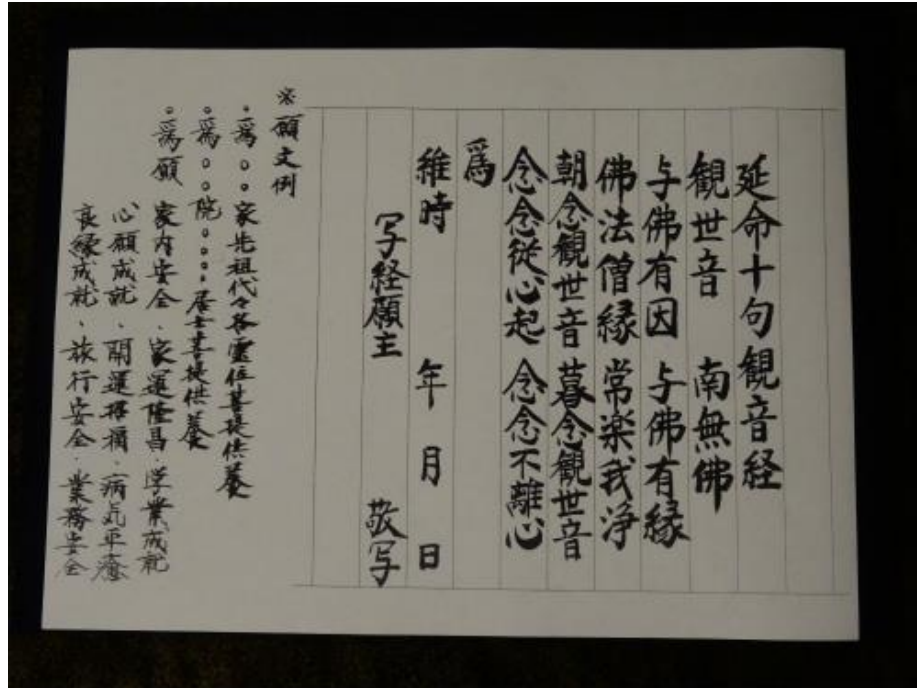 延命十句観音経
観世音 南無佛
与佛有因 与佛有縁
佛法僧縁 常楽我浄
朝念観世音 暮念観世音
念念従心起 念念不離心
爲
維時 年 月 日
写経願主 敬写
※願文例
・爲○○家先祖代々各霊位菩提供養
○爲○○院○○○○居士菩提供養
○爲願 家内安全、家運隆昌 学業成就
心願成就、開運招福、病気平癒
良縁成就、旅行安全、業務安全